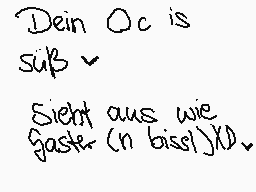 Dein Oc is
süß ♥
Sieht aus wie
Gaster (n bissl) XD ♥